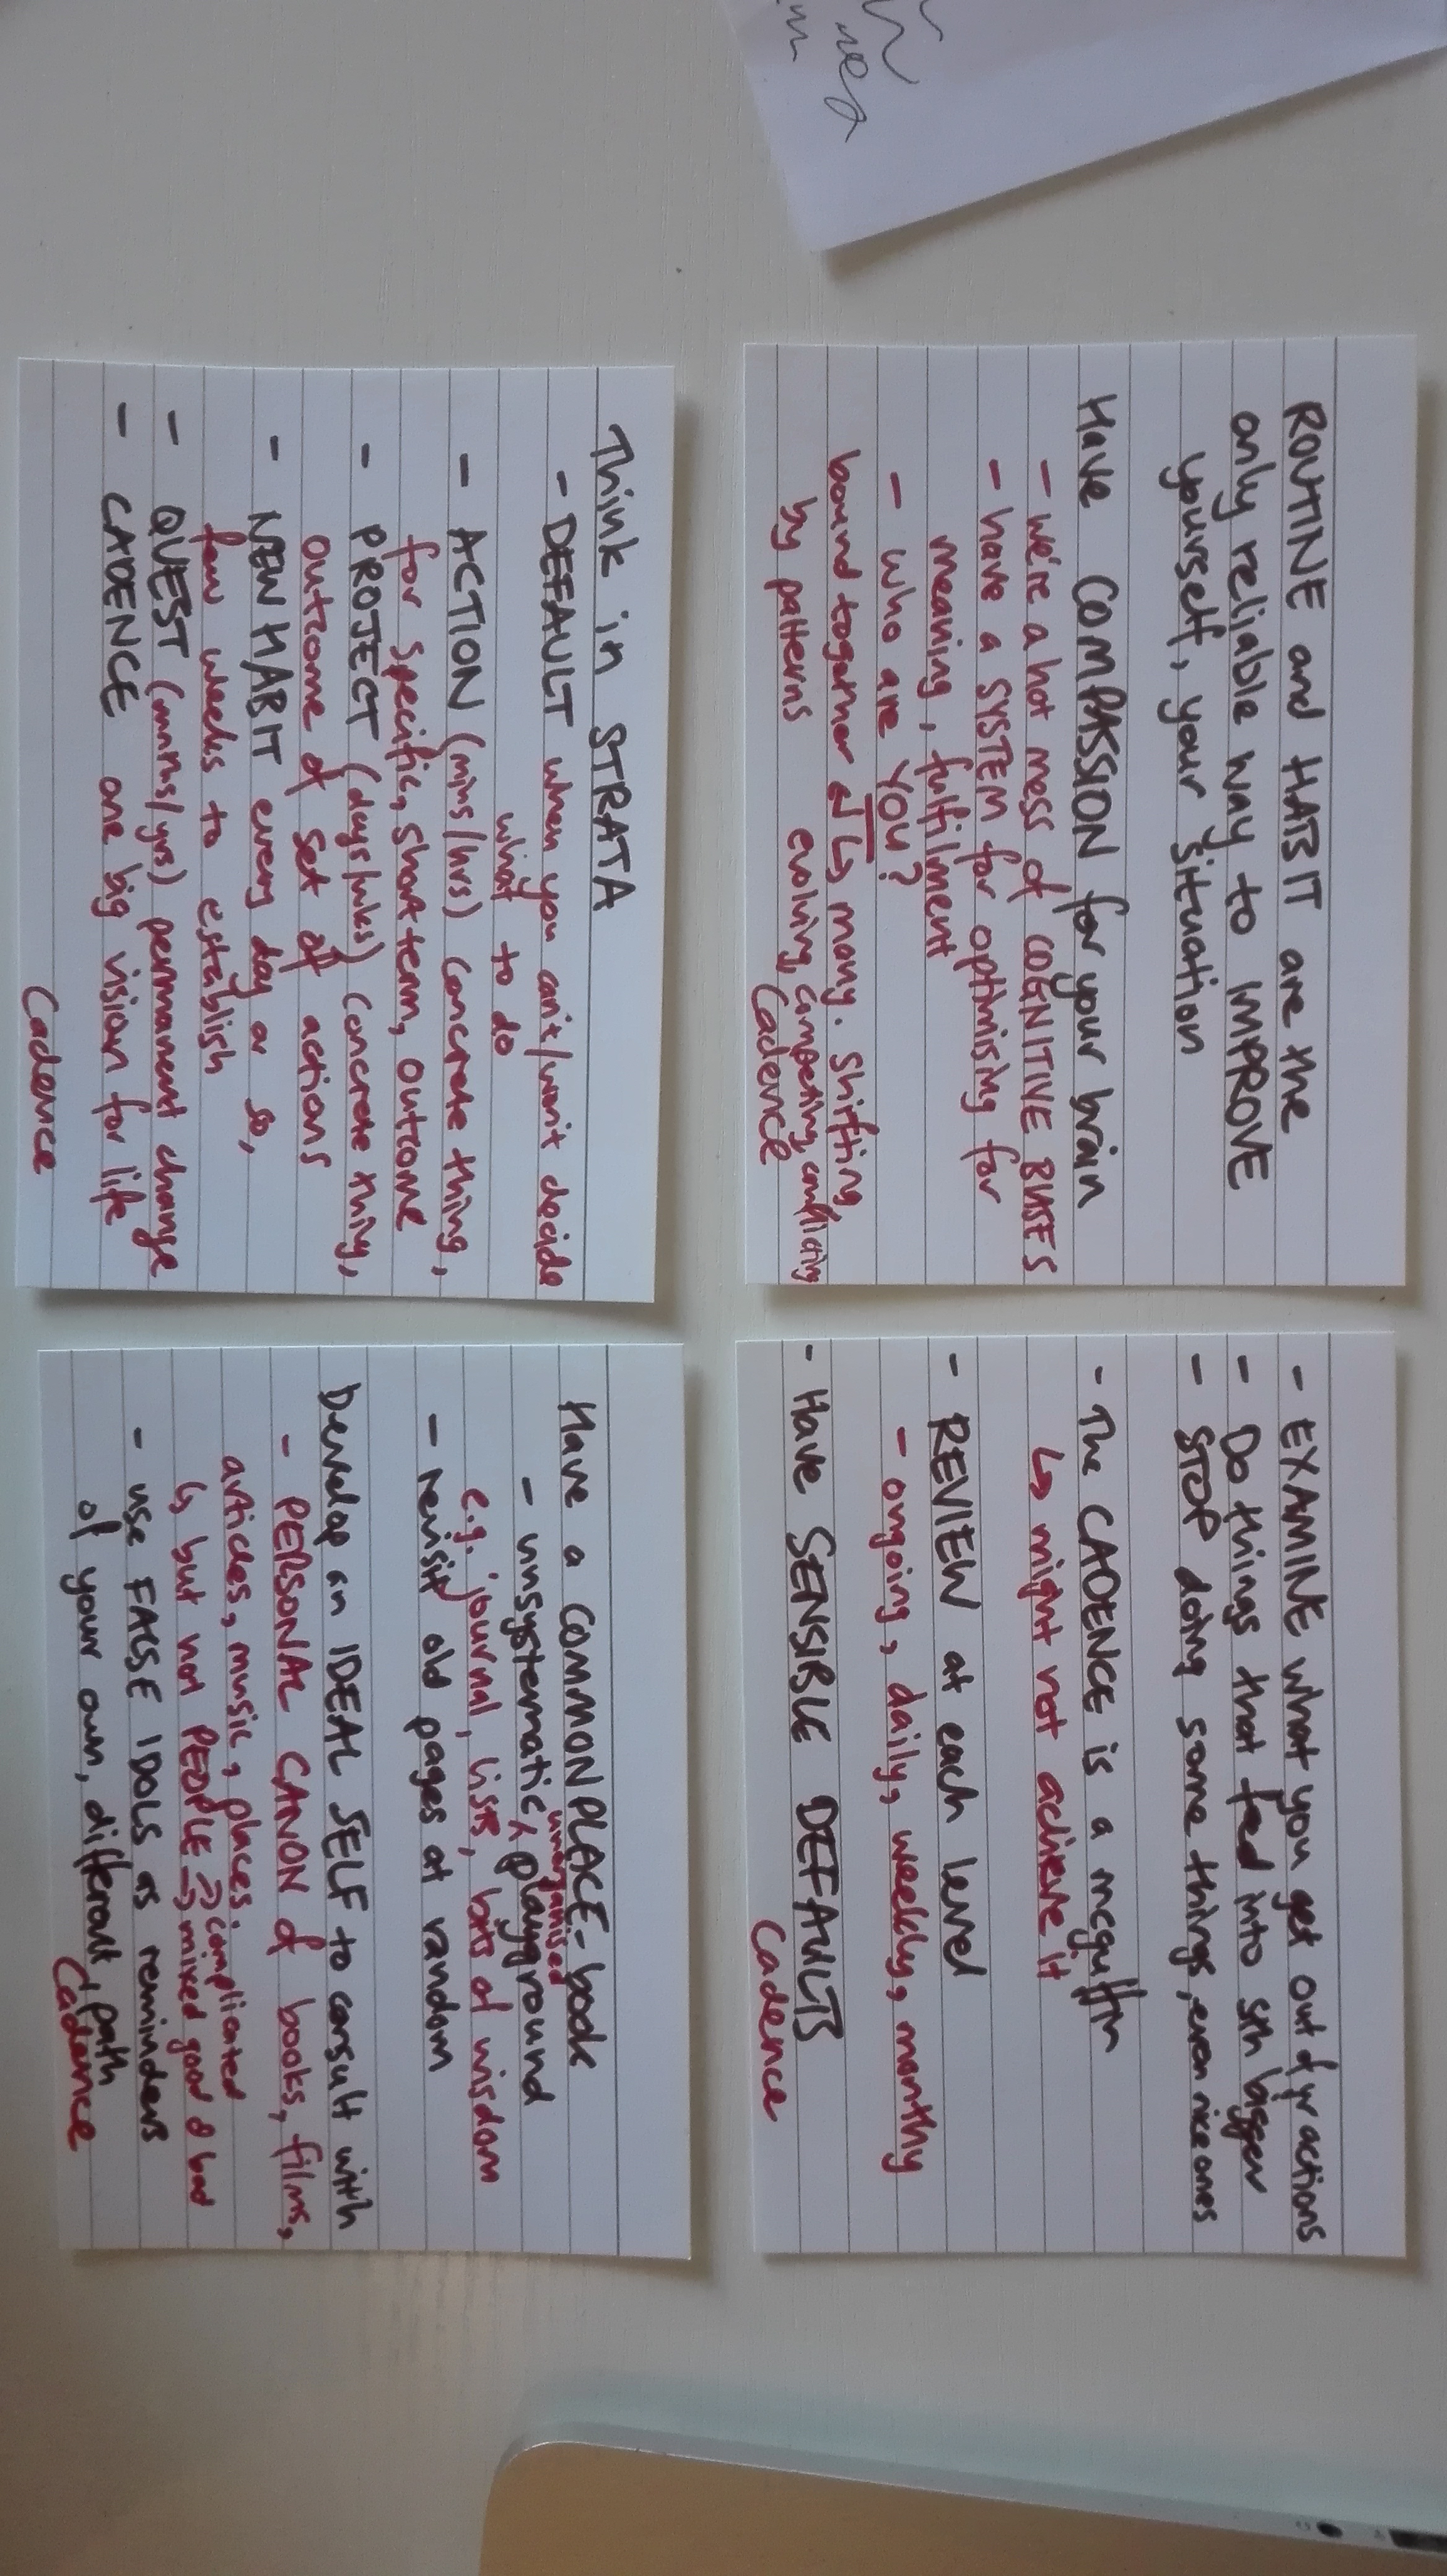 ROUTINE and HABIT are the
only reliable way to IMPROVE
yourself, your situation
Have COMPASSION for your brain
- we're a hot mess of COGNITIVE BIASES
- have a SYSTEM for optimising for
meaning, fulfilment
- who are YOU?
↳ many. Shifting,
bound together
evolving, competing, conflicting
by patterns
Cadence
- EXAMINE what you get out of yr actions
- Do things that feed into sth bigger
- STOP doing some things, even nice ones
- The CADENCE is a mcguffin
↳ might not achieve it
- REVIEW at each level
- ongoing, daily, weekly, monthly
- Have SENSIBLE DEFAULTS
Cadence
Think in STRATA
- DEFAULT when you can't/won't decide
what to do
- ACTION (mins/hrs) concrete thing,
for specific, short term, outcome
- PROJECT (days/wks) concrete thing,
outcome of set of actions
- NEW HABIT every day or so,
few weeks to establish
- QUEST (mnths/yrs) permanent change
- CADENCE one big vision for life
Cadence
Have a COMMONPLACE-book
unorganised
- unsystematic, playground
e.g. journal, lists, bits of wisdom
- revisit old pages at random
Develop an IDEAL SELF to consult with
- PERSONAL CANON of books, films,
articles, music, places.
↳ but not PEOPLE → complicated
→ mixed good & bad
- use FALSE IDOLS as reminders
of your own, different, path
Cadence